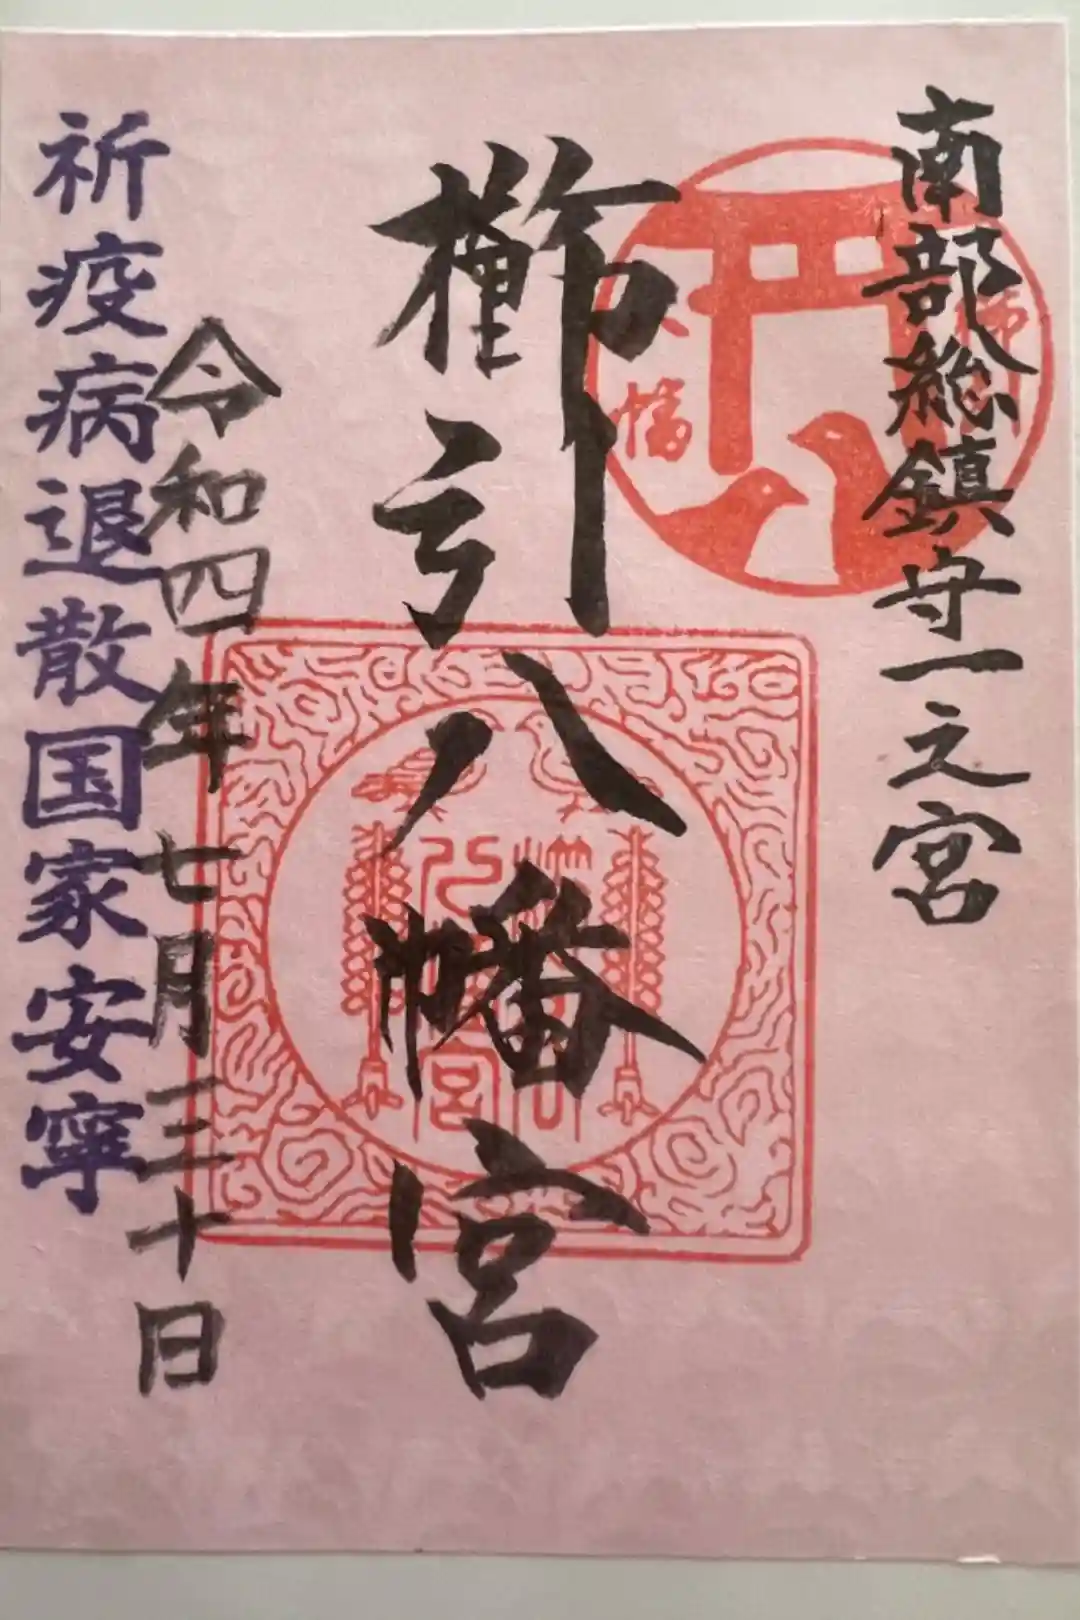 南部総鎮守一之宮
櫛引八幡宮
令和四年七月三十日
祈疫病退散国家安寧